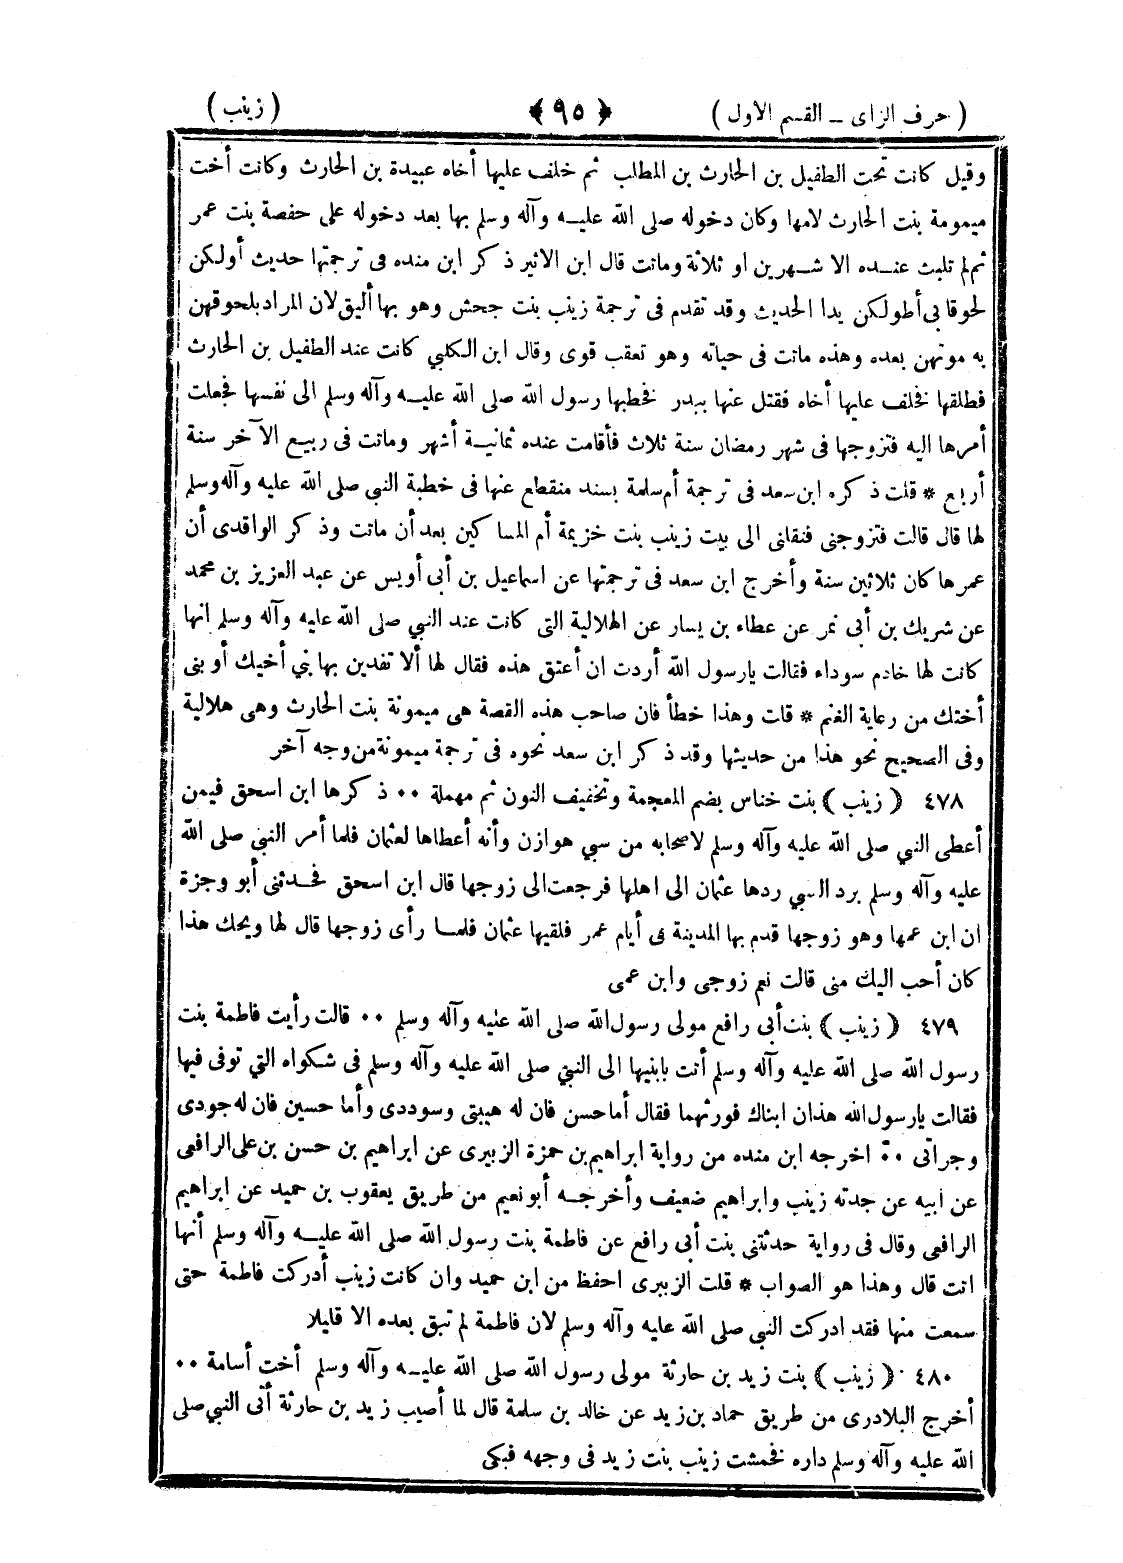 ( حرف الزاى ــ القسم الاول ) ﴿ ٩٥ ﴾ ( زينب )
وقيل كانت تحت الطفيل بن الحارث بن المطلب ثم خلف عليها أخاه عبيدة بن الحارث وكانت أخت
ميمومة بنت الحارث لامها وكان دخوله صلى الله عليه وآله وسلم بها بعد دخوله على حفصة بنت عمر
ثم لم تلبث عنده الا شهرين او ثلاثة وماتت قال ابن الاثير ذكر ابن منده فى ترجمتها حديث أولكن
لحوقا بى أطولكن يدا الحديث وقد تقدم فى ترجمة زينب بنت جحش وهو بها أليق لان المراد بلحوقهن
به موتهن بعده وهذه ماتت فى حياته وهو تعقب قوى وقال ابن الكلبي كانت عند الطفيل بن الحارث
فطلقها فخلف عليها أخاه فقتل عنها ببدر فخطبها رسول الله صلى الله عليه وآله وسلم الى نفسها فجعلت
أمرها اليه فتزوجها فى شهر رمضان سنة ثلاث فأقامت عنده ثمانية أشهر وماتت فى ربيع الآخر سنة
أربع * قلت ذكره ابن سعد فى ترجمة أم سلمة بسند منقطع عنها فى خطبة النبي صلى الله عليه وآله وسلم
لها قال قالت فتزوجنى فنقلنى الى بيت زينب بنت خزيمة أم المساكين بعد أن ماتت وذكر الواقدى أن
عمرها كان ثلاثين سنة وأخرج ابن سعد فى ترجمتها عن اسماعيل بن أبى أويس عن عبد العزيز بن محمد
عن شريك بن أبى نمر عن عطاء بن يسار عن الهلالية التى كانت عند النبي صلى الله عليه وآله وسلم انها
كانت لها خادم سوداء فقالت يارسول الله أردت ان أعتق هذه فقال لها ألا تفدين بها بني أخيك أو بنى
أختك من رعاية الغنم * قلت وهذا خطأ فان صاحب هذه القصة هى ميمونة بنت الحارث وهى هلالية
وفى الصحيح نحو هذا من حديثها وقد ذكر ابن سعد نحوه فى ترجمة ميمونة من وجه آخر
٤٧٨ ﴿ زينب ﴾ بنت خناس بضم المعجمة وتخفيف النون ثم مهملة ٠٠ ذكرها ابن اسحق فيمن
أعطى النبي صلى الله عليه وآله وسلم لاصحابه من سبي هوازن وأنه أعطاها لعثمان فلما أمر النبي صلى الله
عليه وآله وسلم برد السبي ردها عثمان الى اهلها فرجعت الى زوجها قال ابن اسحق فحدثنى أبو وجزة
ان ابن عمها وهو زوجها قدم بها المدينة فى أيام عمر فلقيها عثمان فلما رأى زوجها قال لها ويحك هذا
كان أحب اليك منى قالت نعم زوجى وابن عمى
٤٧٩ ﴿ زينب ﴾ بنت أبى رافع مولى رسول الله صلى الله عليه وآله وسلم ٠٠ قالت رأيت فاطمة بنت
رسول الله صلى الله عليه وآله وسلم أتت بابنيها الى النبي صلى الله عليه وآله وسلم فى شكواه التي توفى فيها
فقالت يارسول الله هذان ابناك فورثهما فقال أما حسن فان له هيبتى وسوددى وأما حسين فان له جودى
وجرأتى ٠٠ اخرجه ابن منده من رواية ابراهيم بن حمزة الزبيرى عن ابراهيم بن حسن بن على الرافعى
عن ابيه عن جدته زينب وابراهيم ضعيف وأخرجه أبو نعيم من طريق يعقوب بن حميد عن ابراهيم
الرافعى وقال فى رواية حدثتنى بنت أبى رافع عن فاطمة بنت رسول الله صلى الله عليه وآله وسلم أنها
اتت قال وهذا هو الصواب * قلت الزبيرى احفظ من ابن حميد وان كانت زينب أدركت فاطمة حتى
سمعت منها فقد ادركت النبي صلى الله عليه وآله وسلم لان فاطمة لم تبق بعده الا قليلا
٤٨٠ ﴿ زينب ﴾ بنت زيد بن حارثة مولى رسول الله صلى الله عليه وآله وسلم أخت أسامة ٠٠
أخرج البلادرى من طريق حماد بن زيد عن خالد بن سلمة قال لما أصيب زيد بن حارثة أتى النبي صلى
الله عليه وآله وسلم داره فخمشت زينب بنت زيد فى وجهه فبكى